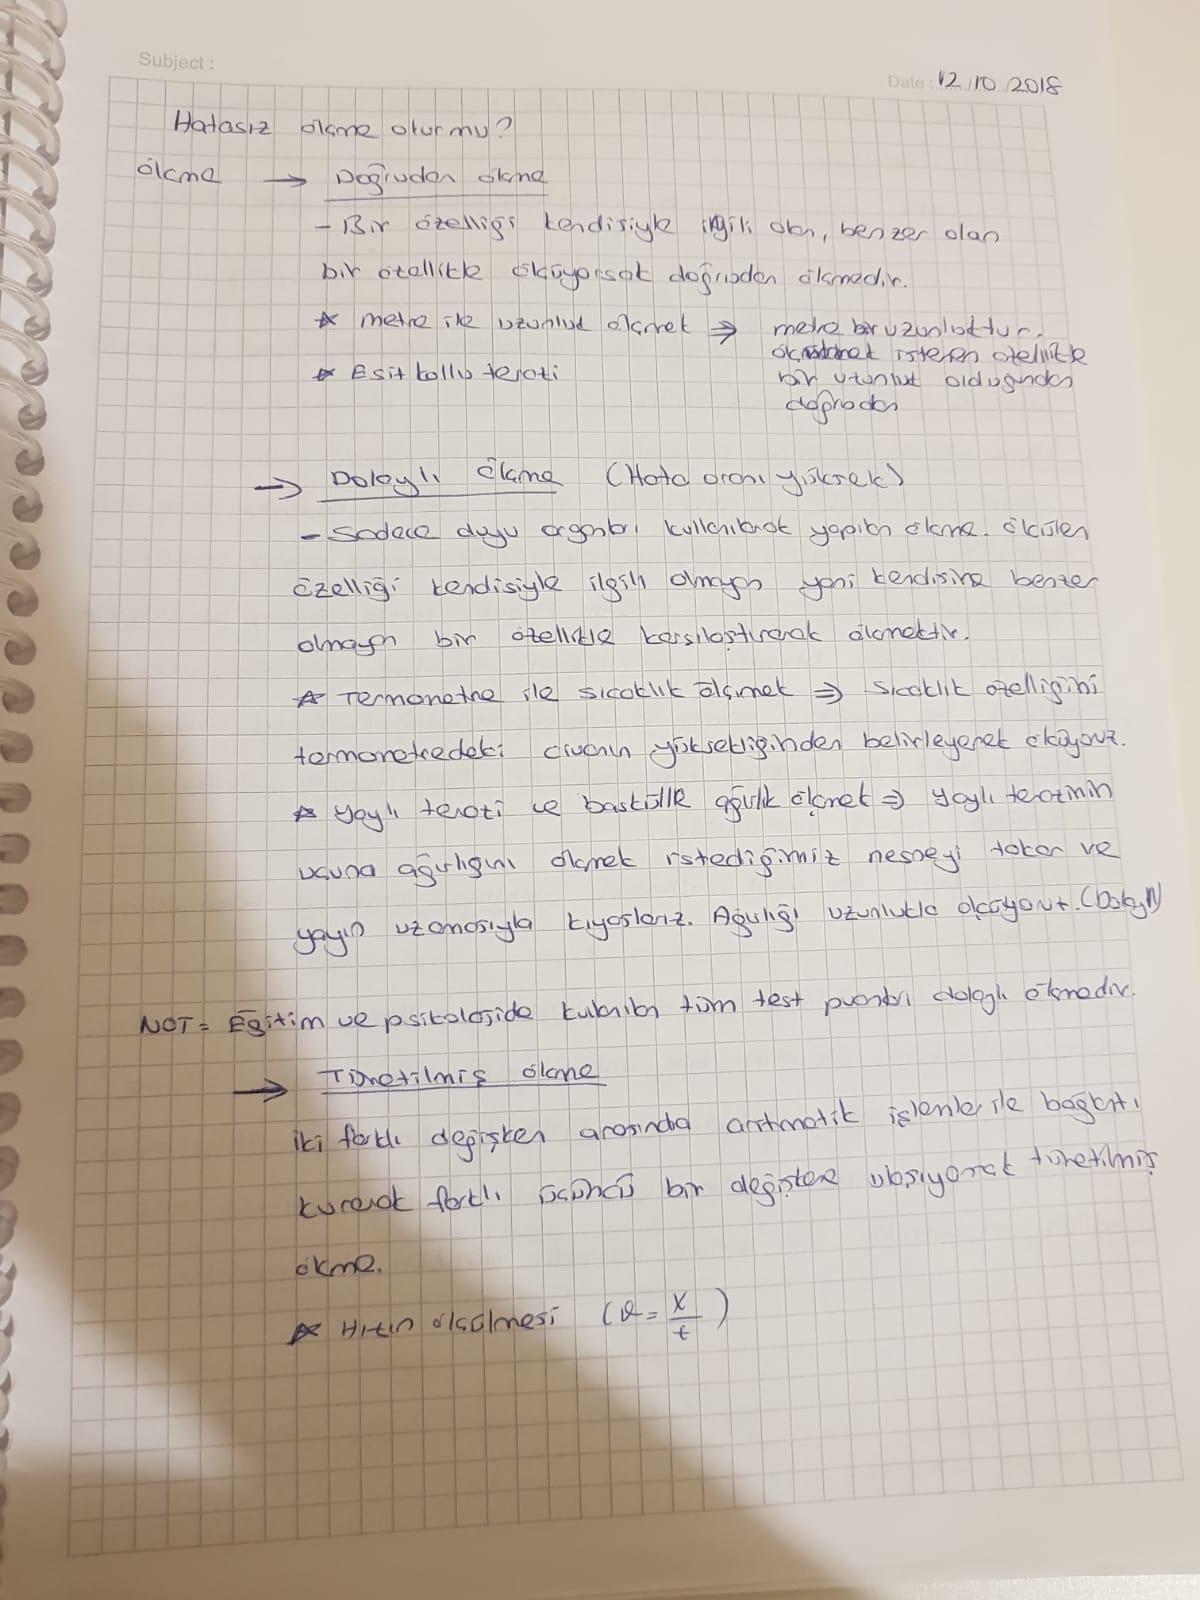 Subject :
Date : 12/10/2018
Hatasız ölçme olur mu?
ölçme → Doğrudan ölçme
- Bir özelliği kendisiyle ilgili olan, benzer olan
bir özellikle ölçüyorsak doğrudan ölçmedir.
* metre ile uzunluk ölçmek ⇒ metre bir uzunluktur.
istenen özellikte
* Eşit kollu terazi
bir uzunluk olduğundan
doğrudan
→ Dolaylı ölçme (Hata oranı yüksek)
- Sadece duyu organları kullanılarak yapılan ölçme. ölçülen
özelliği kendisiyle ilgili olmayan yani kendisine benzer
olmayan bir özellikle karşılaştırarak ölçmektir.
* Termometre ile sıcaklık ölçmek ⇒ sıcaklık özelliğini
termometredeki civanın yüksekliğinden belirleyerek ölçüyoruz.
* Yaylı terazi ve baskülle ağırlık ölçmek ⇒ yaylı terazinin
ucuna ağırlığını ölçmek istediğimiz nesneyi takar ve
yayın uzamasıyla kıyaslarız. Ağırlığı uzunlukla ölçüyoruz. (Dolaylı)
NOT = Eğitim ve psikolojide kullanılan tüm test puanları dolaylı ölçmedir.
→ Türetilmiş ölçme
iki farklı değişken arasında aritmatik işlemler ile bağıntı
kurarak farklı üçüncü bir değişkene ulaşıyorsak türetilmiş
ölçme.
* Hızın ölçülmesi (v = x/t)